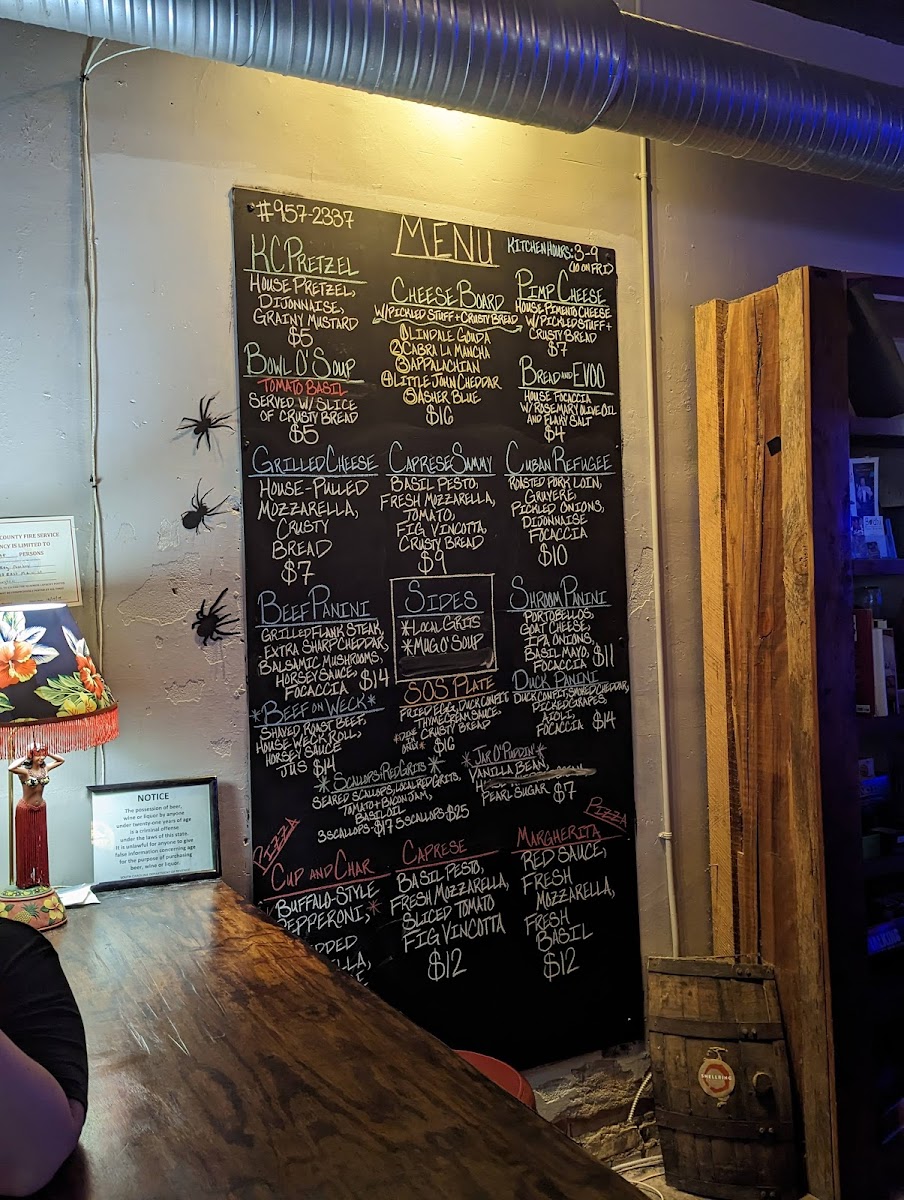 #957-2337
MENU
KITCHEN HOURS: 3-9
(10 ON FRI)
KC PRETZEL
HOUSE PRETZEL,
DIJONNAISE,
GRAINY MUSTARD
$5
CHEESE BOARD
W/PICKLED STUFF + CRUSTY BREAD
①LINDALE GOUDA
②CABRA LA MANCHA
③APPALACHIAN
④LITTLE JOHN CHEDDAR
⑤ASHER BLUE
$16
PIMP CHEESE
HOUSE PIMENTO CHEESE
W/PICKLED STUFF +
CRUSTY BREAD
$7
BOWL O' SOUP
TOMATO BASIL
SERVED W/ SLICE
OF CRUSTY BREAD
$5
BREAD AND EVOO
HOUSE FOCACCIA
W/ROSEMARY OLIVE OIL
AND FLAKY SALT
$4
GRILLED CHEESE
HOUSE-PULLED
MOZZARELLA,
CRUSTY
BREAD
$7
CAPRESE SAMMY
BASIL PESTO,
FRESH MOZZARELLA,
TOMATO,
FIG VINCOTTA,
CRUSTY BREAD
$9
CUBAN REFUGEE
ROASTED PORK LOIN,
GRUYERE,
PICKLED ONIONS,
DIJONNAISE
FOCACCIA
$10
BEEF PANINI
GRILLED FLANK STEAK,
EXTRA SHARP CHEDDAR,
BALSAMIC MUSHROOMS,
HORSEY SAUCE,
FOCACCIA $14
SIDES
*LOCAL GRITS
*MUG O' SOUP
SHROOM PANINI
PORTOBELLOS,
GOAT CHEESE,
IPA ONIONS,
BASIL MAYO,
FOCACCIA $11
*BEEF ON WECK*
SHAVED ROAST BEEF,
HOUSE WECK ROLL,
HORSEY SAUCE
JUS $14
SOS PLATE
FRIED EGG, DUCK CONFIT
THYME CREAM SAUCE
CRUSTY BREAD
ONLY*
$16
DUCK PANINI
DUCK CONFIT, SMOKED CHEDDAR,
PICKLED GRAPES,
AIOLI,
FOCACCIA $14
*SCALLOPS + RED GRITS*
SEARED SCALLOPS, LOCAL RED GRITS,
TOMATO + BACON JAM,
BASIL OIL
3 SCALLOPS-$17 5 SCALLOPS-$25
*JAR O' PUDDIN'*
VANILLA BEAN,
PEARL SUGAR $7
PIZZA
PIZZA
CUP AND CHAR
*BUFFALO-STYLE
PEPPERONI,*
CAPRESE
BASIL PESTO,
FRESH MOZZARELLA,
SLICED TOMATO
FIG VINCOTTA
$12
MARGHERITA
RED SAUCE,
FRESH
MOZZARELLA,
FRESH
BASIL
$12
COUNTY FIRE SERVICE
NCY IS LIMITED TO
PERSONS
NOTICE
The possession of beer,
wine or liquor by anyone
under twenty-one years of age
is a criminal offense
under the laws of this state.
It is unlawful for anyone to give
false information concerning age
for the purpose of purchasing
beer, wine or liquor.
SMELLRING